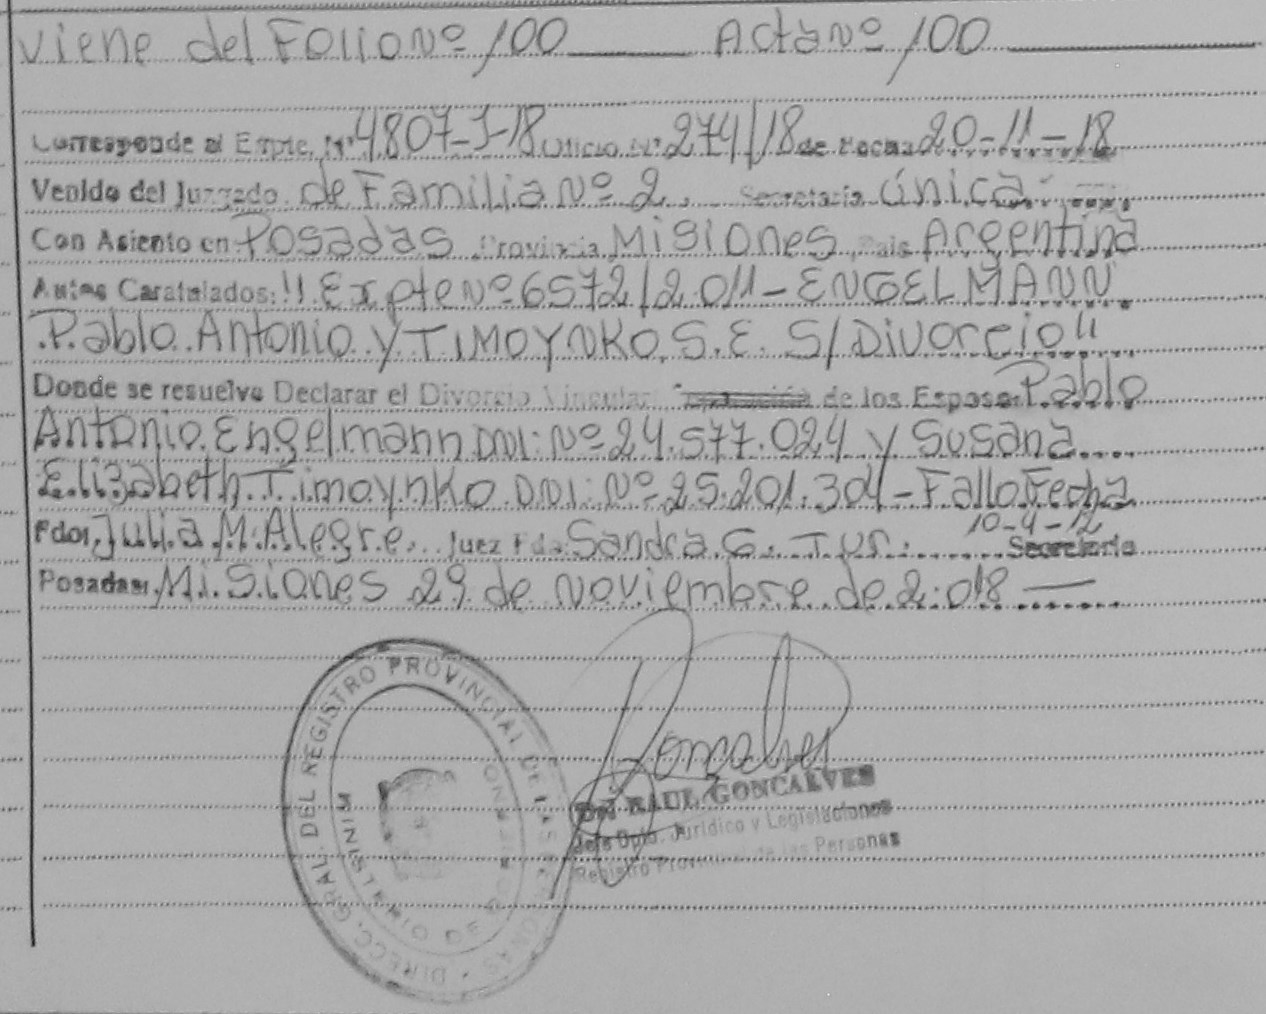 Viene del Folio Nº 100 Acta Nº 100
Corresponde al Expte. Nº 4807-J-18 Oficio Nº 274/18 de Fecha 20-11-18
Venido del Juzgado de Familia Nº 2. Secretaría Única
Con Asiento en Posadas Provincia Misiones País Argentina
Autos Caratulados: "Expte Nº 6572/2.011-ENGELMANN
Pablo Antonio y TIMOYNKO, S.E. S/Divorcio"
Donde se resuelve Declarar el Divorcio Vincular de los Esposos: Pablo
Antonio Engelmann DNI: Nº 24.577.024 y Susana
Elizabeth Timoynko DNI: Nº 25.201.304-Fallo Fecha
10-4-12
Fdo: Julia M. Alegre. Juez Fdo. Sandra G. Tur. Secretaria
Posadas, Misiones 29 de Noviembre de 2.018
DIRECC. GRAL. DEL REGISTRO PROVINCIAL DE LAS PERSONAS
MINISTERIO DE GOBIERNO
Goncalves
RAUL GONCALVES
Jefe Dpto. Jurídico y Legislaciones
Registro Provincial de las Personas